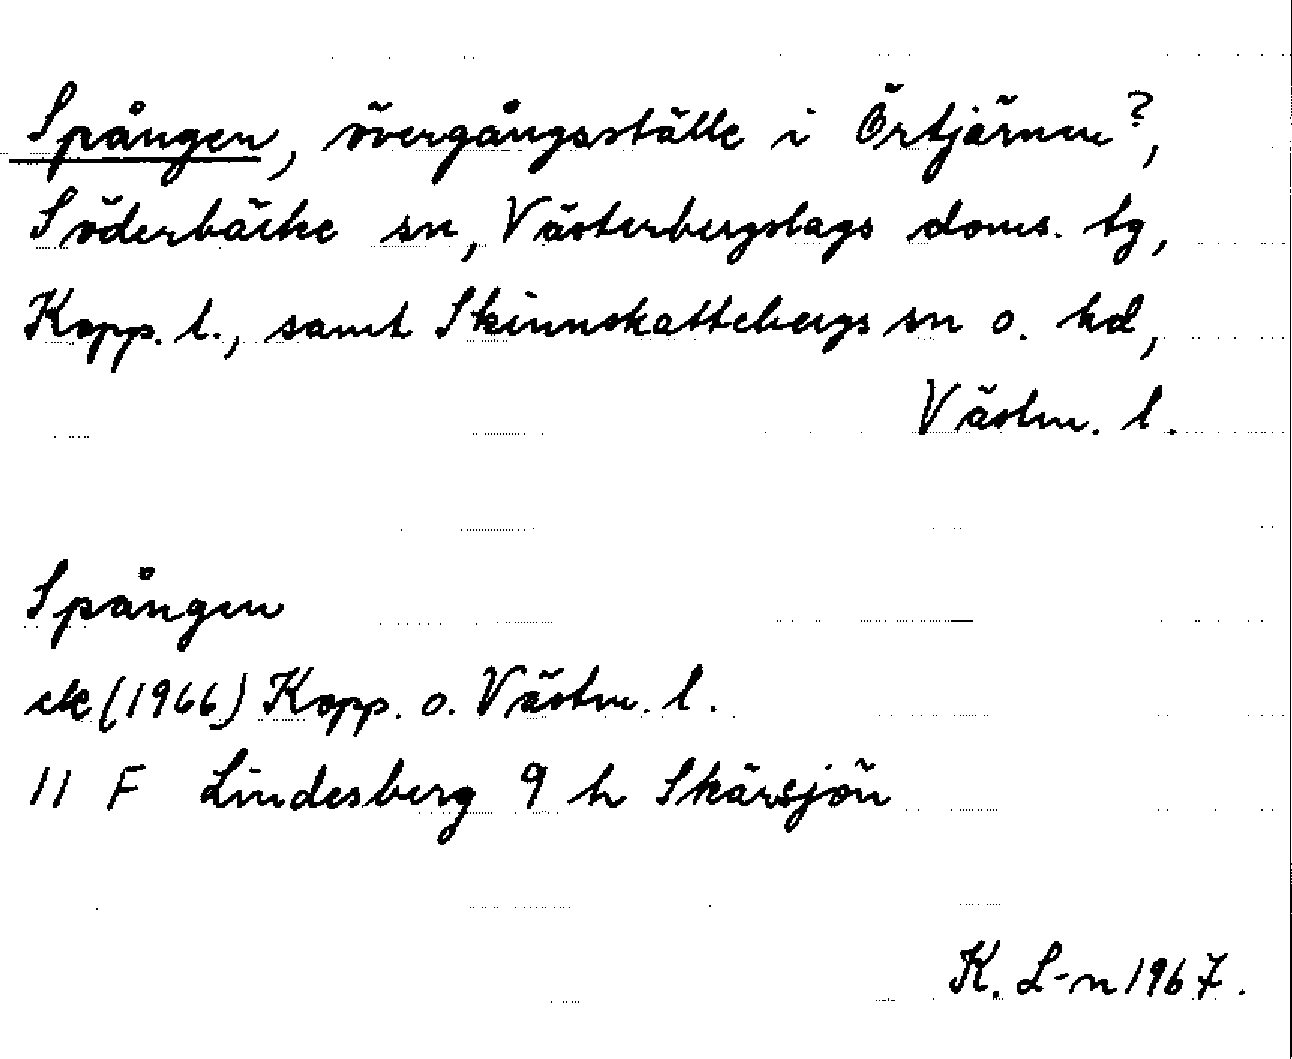 Spången, övergångsställe i Örtjärnen?,
Söderbärke sn, Västerbergslags doms. tg,
Kopp. l., samt Skinnskattebergs sn o. hd,
Västm. l.
Spången
ek (1966) Kopp. o. Västm. l.
11 F Lindesberg 9 h Skärsjön
K. L-n 1967.